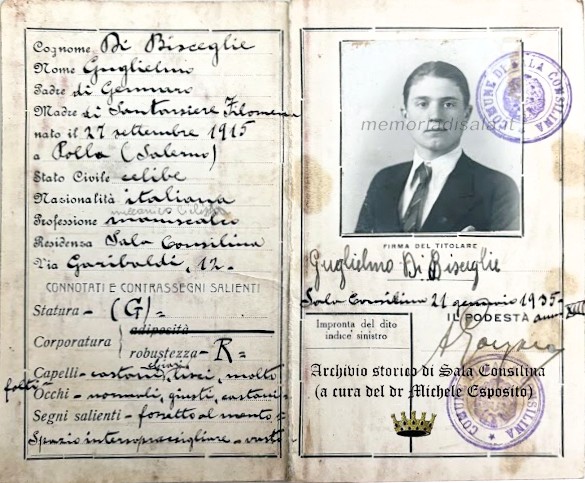 Cognome Di Bisceglie
Nome Guglielmo
Padre di Gennaro
Madre di Santorsiere Filomena
nato il 27 settembre 1915
a Polla (Salerno)
Stato Civile celibe
Nazionalità italiana
meccanico
Professione maniscalco
Residenza Sala Consilina
Via Garibaldi, 12.-
CONNOTATI E CONTRASSEGNI SALIENTI
Statura - (G) =
Corporatura
adiposità
robustezza - R =
chiari
Capelli - castani, lisci, molto
folti =
Occhi - normali, giusti, castani -
Segni salienti - fossetto al mento =
Spazio intersopraccigliare - vasto -
memoriadisala.it
COMUNE DI SALA CONSILINA
FIRMA DEL TITOLARE
Guglielmo Di Bisceglie
Sala Consilina 21 gennaio 1935 - anno XIII
IL PODESTÀ
Impronta del dito
indice sinistro
Archivio storico di Sala Consilina
(a cura del dr Michele Esposito)